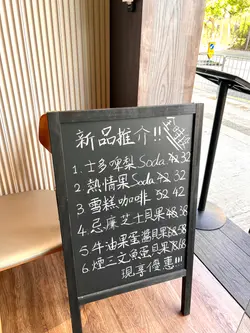 新品推介!!
1. 士多啤梨 Soda 42 32
2. 熱情果 Soda 42 32
3. 雪糕咖啡 52 42
4. 忌廉芝士貝果 48 38
5. 牛油果蛋醬貝果 68 58
6. 煙三文魚蛋貝果 78 68
現享優惠!!!